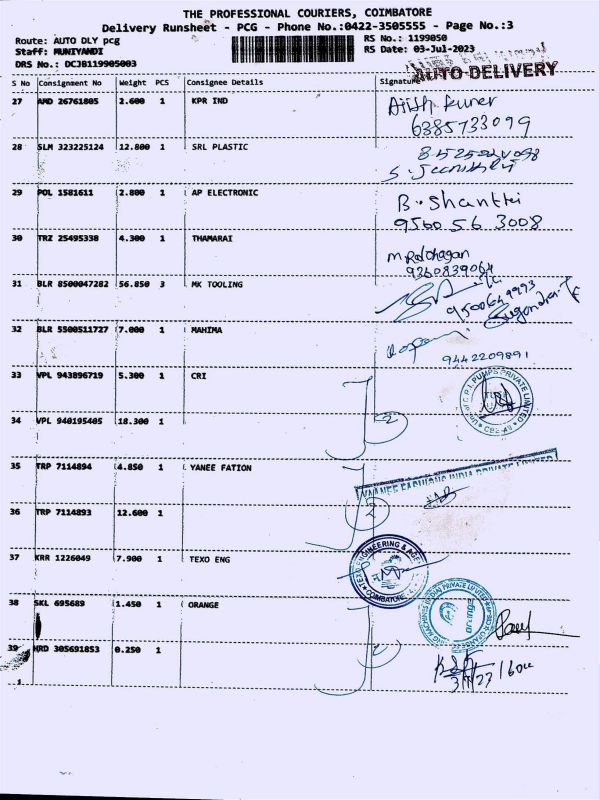 THE PROFESSIONAL COURIERS, COIMBATORE
Delivery Runsheet - PCG - Phone No.:0422-3505555 - Page No.:3
Route: AUTO DLY pcg RS No.: 1199050
Staff: MUNIYANDI RS Date: 03-Jul-2023
DRS No.: DCJB119905003
AUTO DELIVERY
S No Consignment No Weight PCS Consignee Details Signature
27 AMD 26761805 2.600 1 KPR IND
6385733099
28 SLM 323225124 12.800 1 SRL PLASTIC
29 POL 1581611 2.800 1 AP ELECTRONIC B. Shanthi
9560 56 3008
30 TRZ 25495338 4.300 1 THAMARAI
9360839064
31 BLR 8500047282 56.850 3 MK TOOLING
32 BLR 5500511727 7.000 1 MAHIMA
9442209891
33 VPL 943896719 5.300 1 CRI
34 VPL 940195405 18.300 1 2
35 TRP 7114894 4.850 1 YANEE FATION
YAANEE FASHIONS INDIA PRIVATE LIMITED
36 TRP 7114893 12.600 1 2
37 KRR 1226049 7.900 1 TEXO ENG
TEXO ENGINEERING & AGE
COIMBATORE
38 SKL 695689 1.450 1 ORANGE
39 HRD 305691853 0.250 1
1